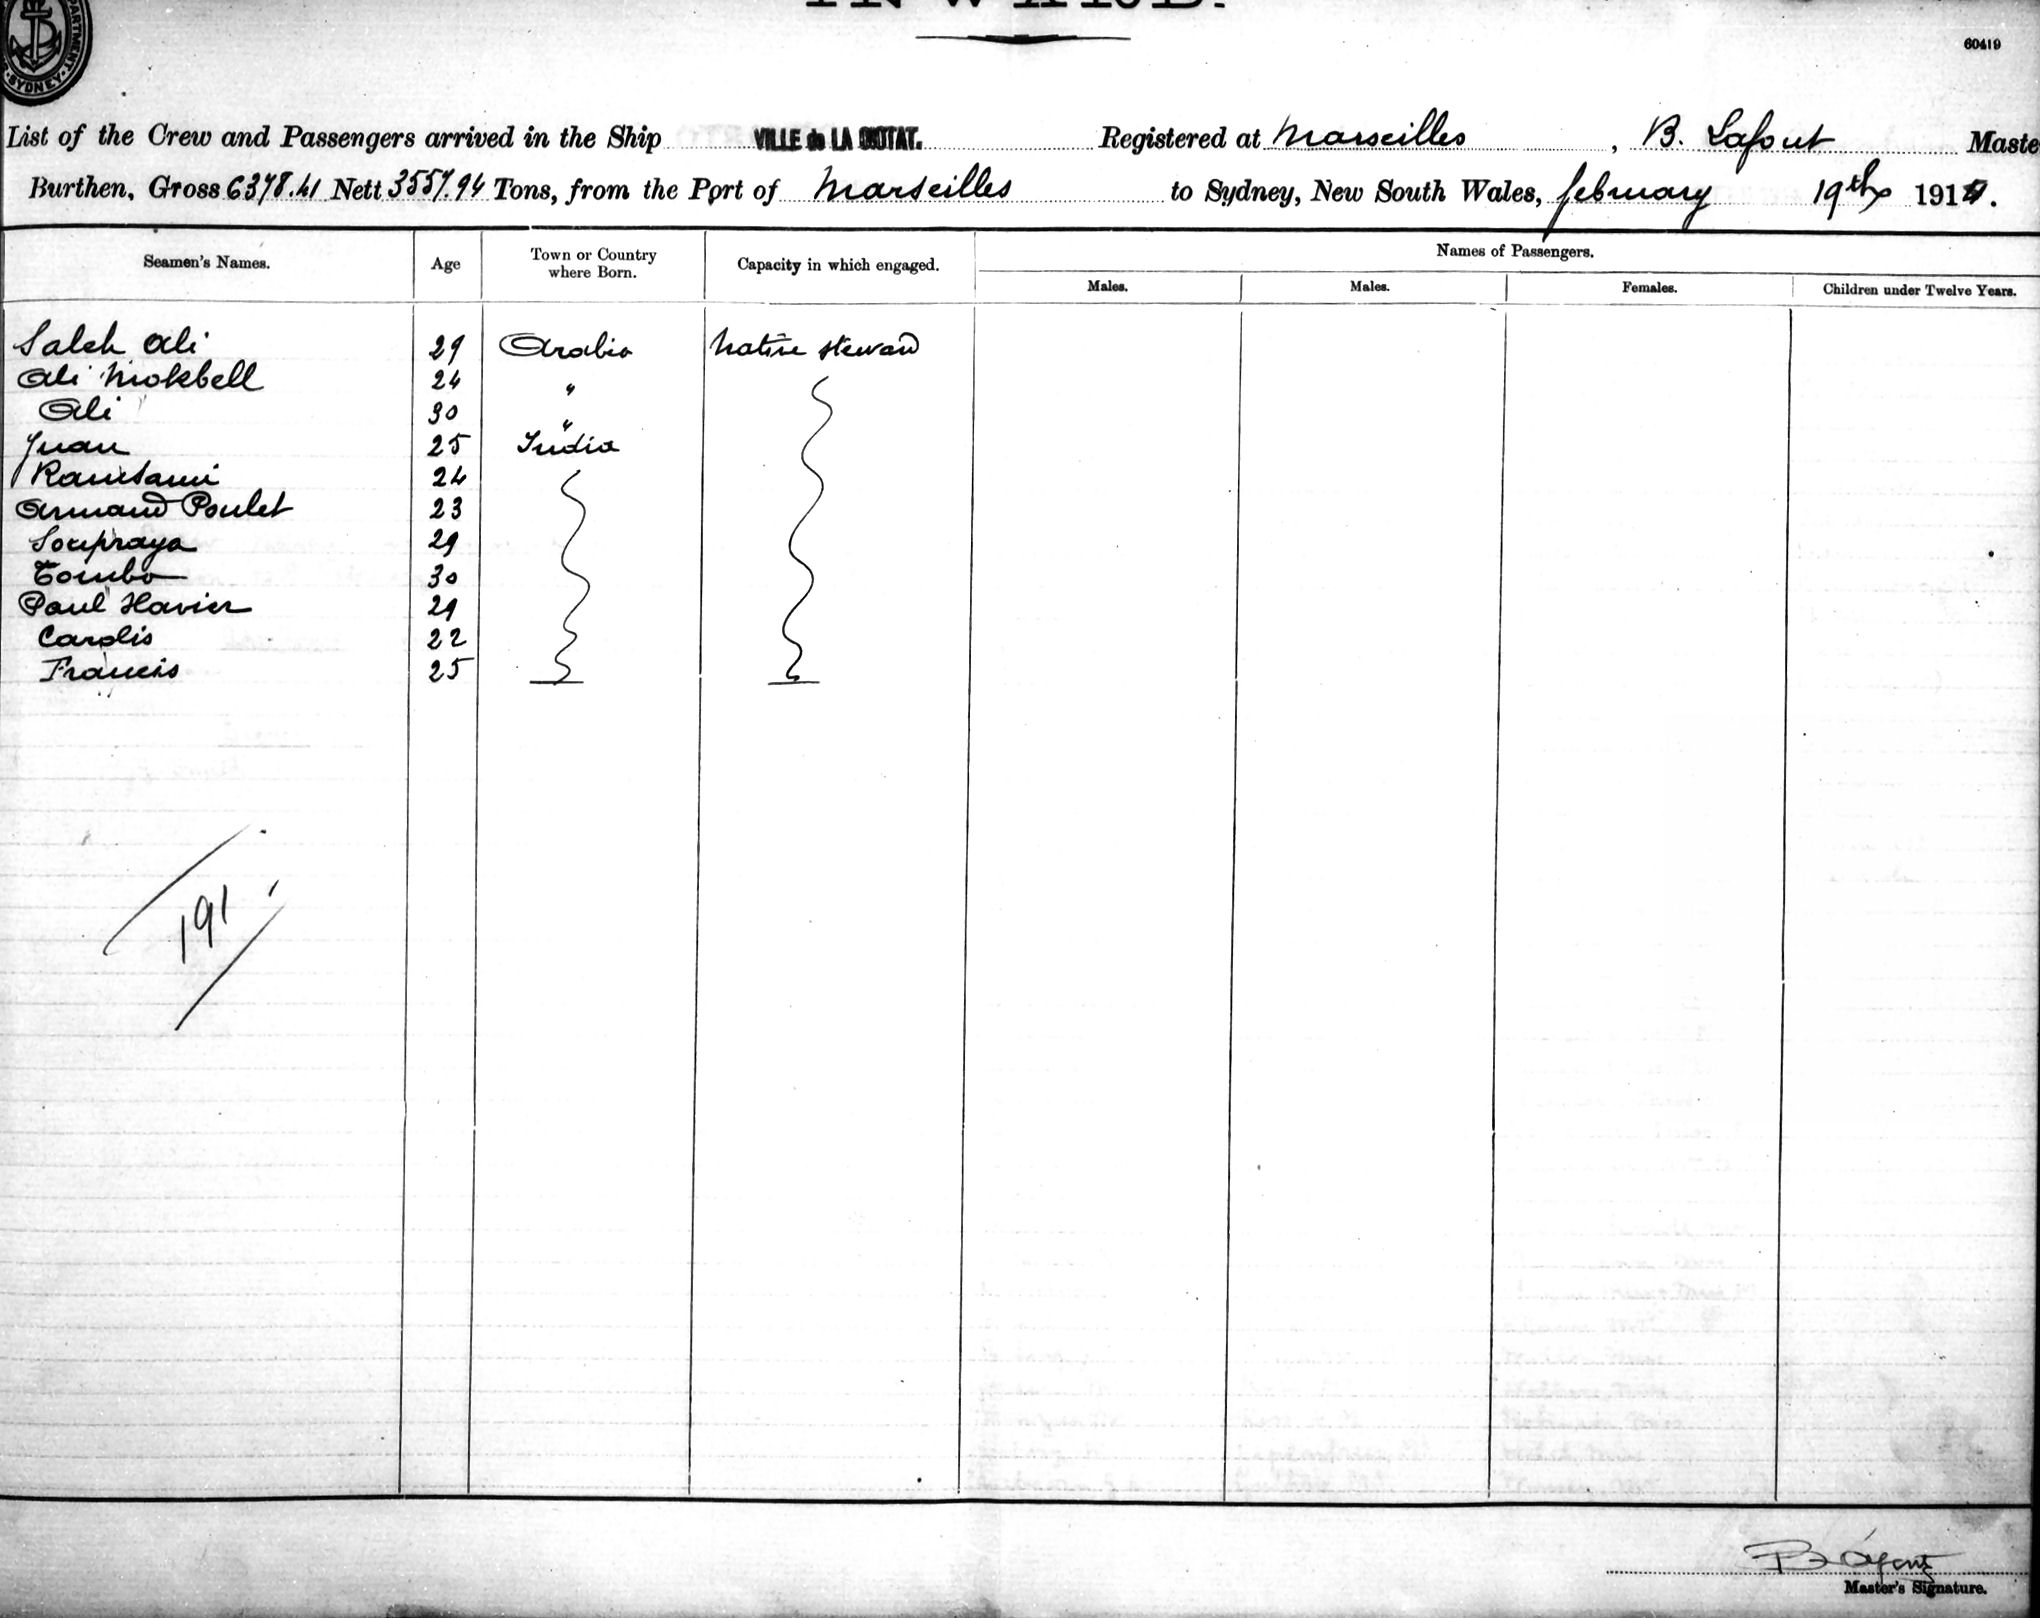 INWARD.
60419
DEPARTMENT. SYDNEY
List of the Crew and Passengers arrived in the Ship VILLE de LA CIOTAT. Registered at Marseilles, B. Lafont Maste
Burthen, Gross 6378.41 Nett 3557.94 Tons, from the Port of Marseilles to Sydney, New South Wales, february 19th 191
Seamen's Names. Age Town or Country where Born. Capacity in which engaged. Names of Passengers.
Males. Males. Females. Children under Twelve Years.
Saleh Ali 29 Arabia Native steward
Ali Mokbell 24 "
Ali 30 "
Juan 25 India
Ramsami 24
Armand Poulet 23
Soupraya 29
Combo 30
Paul Havier 29
Carolis 22
Francis 25
191
B Lafont
Master's Signature.